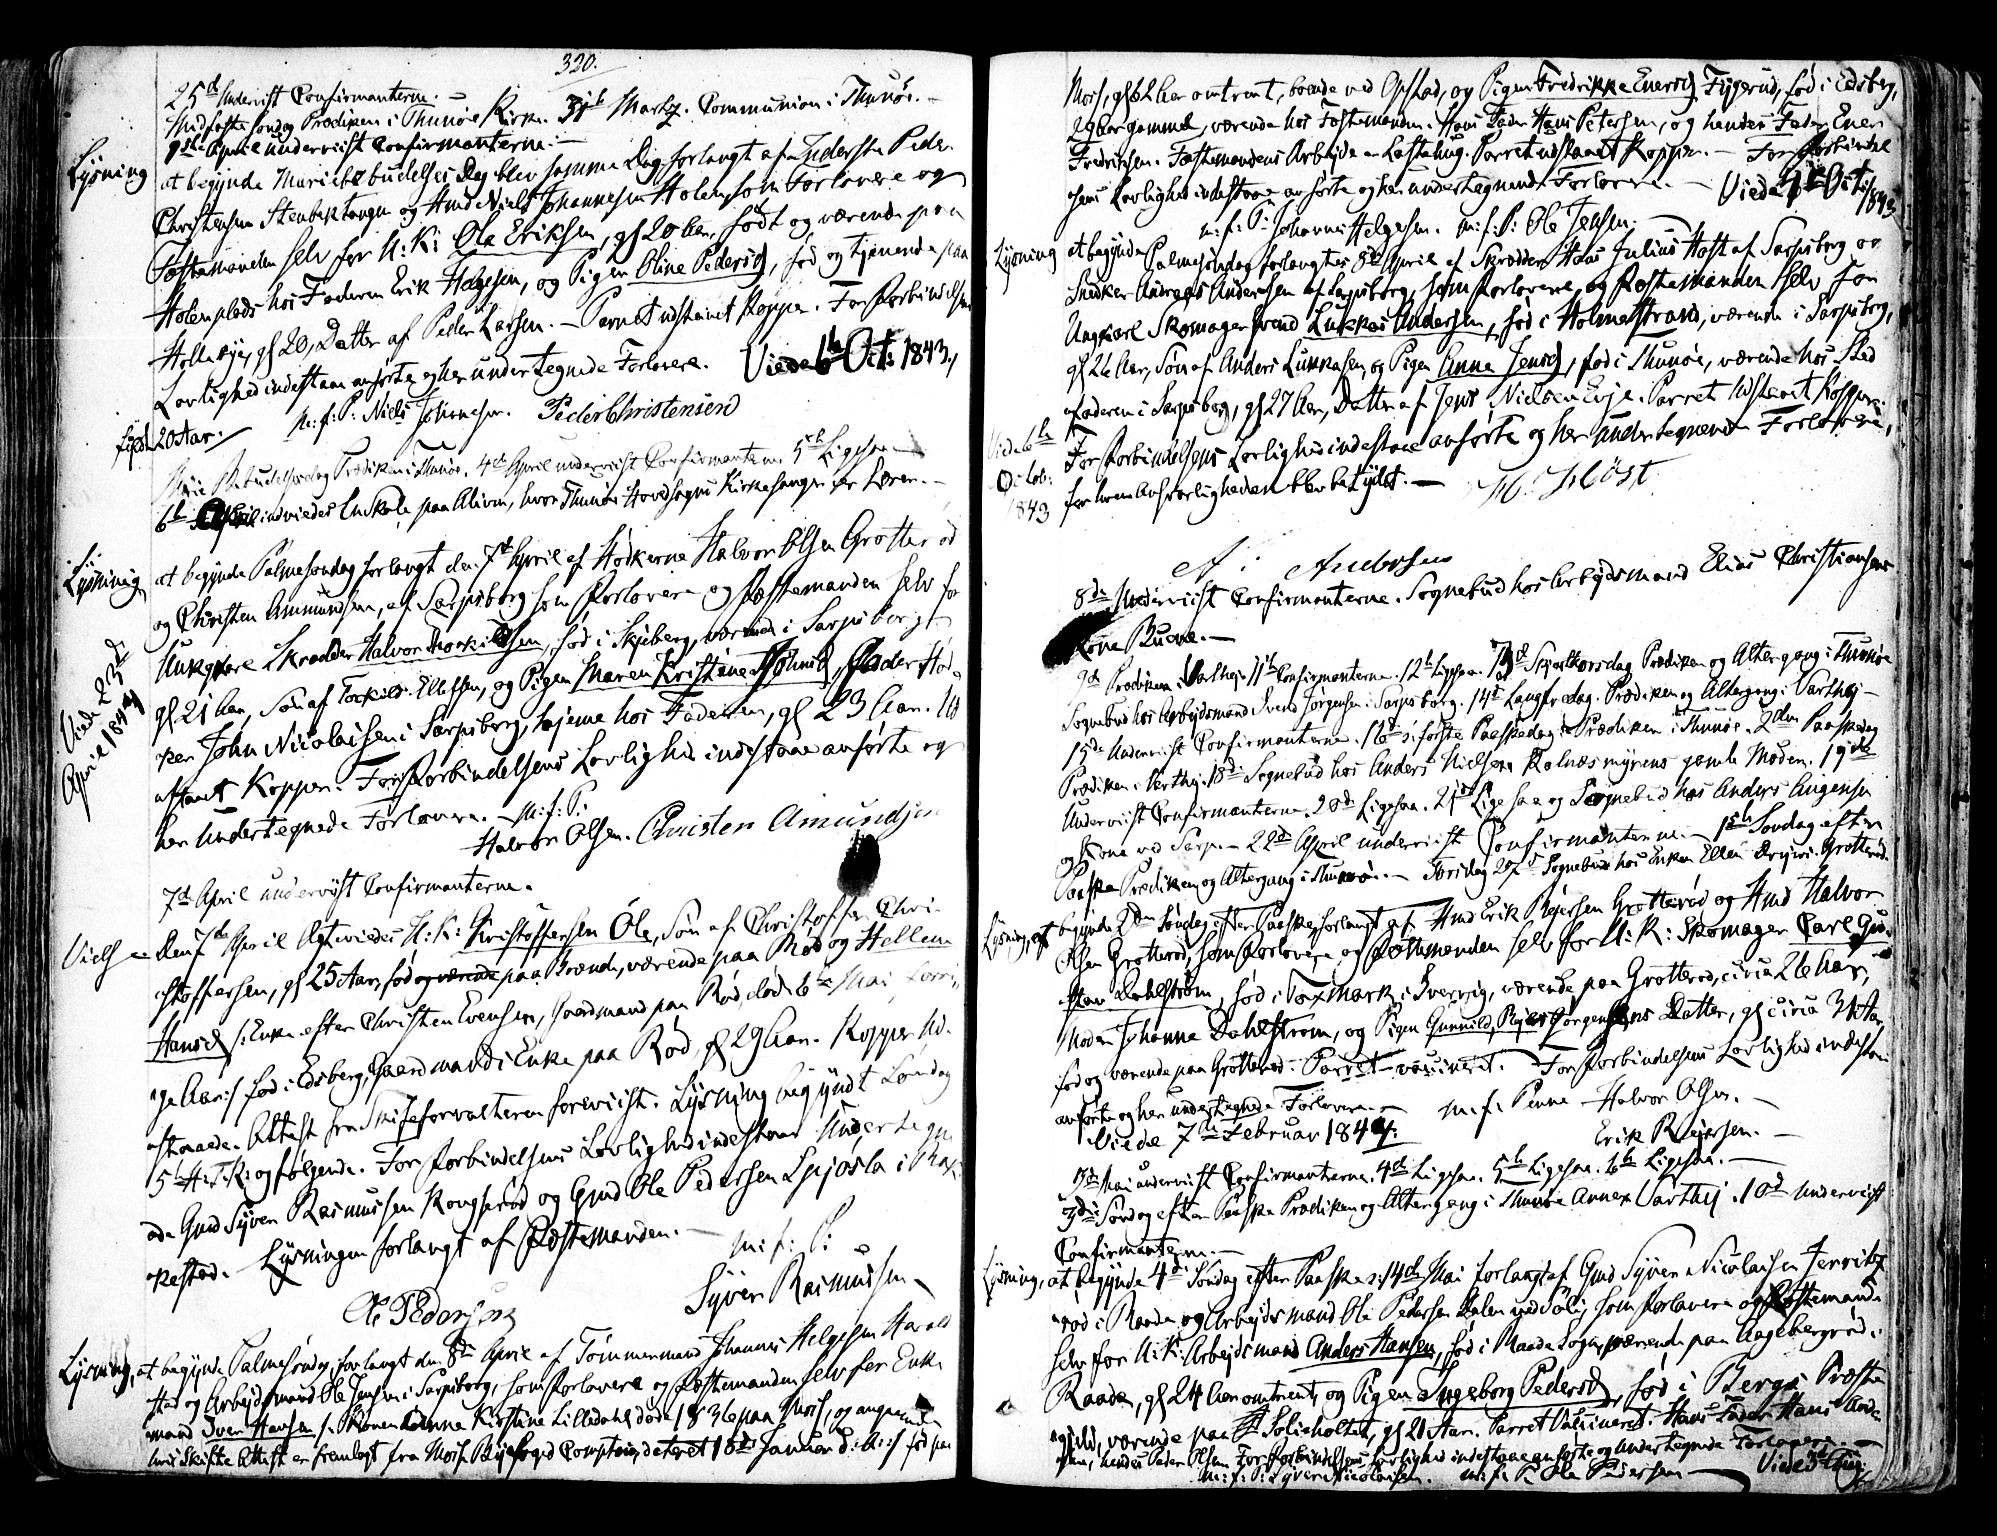 320.
25d Underviist Confirmanterne.
Midfaste Søndag Prædiken i Thunøe Kirke. 31th Martz. Communion i Thunøe.
April underviist Confirmanterne.
Lysning
at begynde Mariæ budelses Dag blev samme Dag forlangt af Inderste Peder
Christensen Stenbektangen og Hmd Niels Johannesen Holen som Forlovere og
Fæstemanden selv for U: K: Ole Eriksen, gl 20 Aar, født og værende paa
Holenplads hos Faderen Erik Hagesen, og Pigen Oline Pedersd, fød og tjenende paa
gl 20, Datter af Peder Larsen. Parret udstaaet Kopper. For Forbindelsens
Lovlighed indestaae anførte og her undertegnede Forlovere. Viede 6th Oct: 1843.
m: f: P: Niels Johannesen. Peder Christensen
20 Aar.
Budelsesdag Prædiken i Thunøe. 4d April underviist Confirmanterne. 5th Ligesaa
6th April indviedes en Skole paa Alvim, hvor Thunøe Hovedsogns Kirkesanger er Lærer.
Lysning
at begynde Palmesøndag forlangt den 7d April af Høkerne Halvor Olsen Grotterød
og Christen Amundsen, af Sarpsborg som Forlovere og Fæstemanden selv for
Ungkarl Skrædder Halvor Torkildsen, fød i Skjeberg, værende i Sarpsborg,
gl 21 Aar, Søn af Torkild Ellefsen, og Pigen Maren Kristine Johnsd, Fader Hø-
ker John Nicolaisen i Sarpsborg, hjemme hos Faderen, gl 23 Aar. Ud-
staaet Kopper. For Forbindelsens Lovlighed indestaae anførte og
her undertegnede Forlovere. m: f: P:
Viede 23d
April 1844
Halvor Olsen. Christen Amundsen
7d April underviist Confirmanterne.
Viels
Den 7d April Ægteviedes U: K: Kristoffersen Ole, Søn af Christoffer Chri-
stoffersen, gl 25 Aar, fød og værende paa Brænde, værende paa Rød og Hellene
Hansd /: Enke efter Christen Evensen, Gaardmand paa Rød, død 6te Mai forri-
ge Aar :/ fød i Edsberg, Gaardmands Enke paa Rød, gl 29 Aar. Kopper ud-
staaede. Attest fra Skifteforvalteren foreviist. Lysning begyndt Søndag
5 H: 3 K: og følgende. For Forbindelsens Lovlighed indestaae undertegne-
de Gmd Syver Rasmussen Kongsrød og Gmd Ole Pedersen Spjøsla i Rak-
kestad. Lysningen forlangt af Fæstemanden. m: f: P:
Syver Rasmussen
Ole Pedersen
Lysning, at begynde Palmesøndag, forlangt den 8de April af Tømmermand Johannes Helgesen Harald
stad og Arbejdsmand Ole Jensen i Sarpsborg, som Forlovere og Fæstemanden selv for Enke
mand Iver Hansen /: Konen Anne Kirstine Lilledahl døde 1836 paa Moss, og angaaende
hvis Skifte Attest er fremlagt fra Moss Byefoged Comptoir, dateret 10de Januar d: A: :/ fød paa
Moss, gl 52 Aar omtrent, boende ved Opstad, og Pigen Fredrikke Enersd Fygerud, fød i Edsberg,
29 Aar gammel, værende hos Fæstemanden. Hans Fader Hans Petersen, og hendes Fader Ener
Fredriksen. Fæstemandens Arbejde er Lastehug. Parret udstaaet Kopper. For Forbindel
sens Lovlighed indestaae anførte og her undertegnede Forlovere. Viede 1th Oct: 1843
m: f: P: Johannes Helgesen. m: f: P: Ole Jensen.
Lysning
at begynde Palmesøndag forlangtes 8de April af Skrædder Hans Julius Høst af Sarpsborg og
Snedker Andreas Andersen af Sarpsborg, som Forlovere, og Fæstemanden selv for
Ungkarl Skomager Svend Lukkas Andersen, fød i Holmestrand, værende i Sarpsborg,
gl 26 Aar, Søn af Anders Lukkasen, og Pigen Anna Jensd, fød i Thunøe, værende hos Sted
faderen i Sarpsborg, gl 27 Aar, Datter af Jens Nielsen Evje. Parret udstaaet Kopper.
Viede 6th
Octob:
1843
For Forbindelsens Lovlighed indestaae anførte og her undertegnede Forlovere,
for hvem Ansvarligheden blev betydet.
H. J. Høst.
A: Andersen
8de Underviist Confirmanterne. Sognebud hos Arbejdsmand Elias Christiansens
Kone Buene.
9d Prædiken i Varthej. 11th Confirmanterne. 12th Ligesaa. 13d Skjærthorsdag Prædiken og Altergang i Thunøe
Sognebud hos Arbejdsmand Svend Jørgensen i Sarpsborg. 14d Langfredag. Prædiken og Altergang i Varthej
15de Underviist Confirmanterne. 16d s: første Paaskedag Prædiken i Thunøe. 2den Paaskedag
Prædiken i Varthej. 18de Sognebud hos Anders Nielsen Kalnæsmyrens gamle Moder. 19de
Underviist Confirmanterne. 20d Ligesaa. 21d Ligesaa og Sognebud hos Anders Augensen
og Kone ved Sarp. 22d April underviist Confirmanterne. 1ste Søndag efter
Paaske Prædiken og Altergang i Thunøe. Torsdag 27d Sognebud hos Enken Ellen Grotterød.
Lysning, at begynde 2den Søndag efter Paaske, forlangt af Hmd Erik Rejersen Grotterød og Hmd Halvor
Olsen Grotterød, som Forlovere og Fæstemanden selv for U: K: Skomager Carl Gu-
stav Dahlstrøm, fød i Foxmark i Sverrig, værende paa Grotterød, circa 26 Aar,
Moder Johanna Dahlstrøm, og Pigen Gunnild Rejers Jørgensens Datter, gl circa 31 Aar
fød og værende paa Grotterød. Parret vaccineret. For Forbindelsens Lovlighed indestaae
anførte og her undertegnede Forlovere. m: f: Penne Halvor Olsen.
Viede 7de Februar 1844.
Erik Rejersen.
3d Mai underviist Confirmanterne. 4d Ligesaa. 5th Ligesaa. 6th Ligesaa.
3die Søndag efter Paaske Prædiken og Altergang i Thunøe Annex Varthej. 10d Underviist
Confirmanterne.
Lysning, at begynde 4de Søndag efter Paaske s: 14d Mai forlangt af Gmd Syver Nicolaisen Jerrits-
rød i Raade og Arbejdsmand Ole Pedersen Dalen ved Sølj som Forlovere og Fæstemanden
selv for U: K: Arbejdsmand Anders Hansen, fød i Raade Sogn, værende paa Aagebergrød i
Raade, gl 24 Aar omtrent, og Pigen Ingeborg Pedersd, fød i Bergs Præste
gield, værende paa Solieholtet, gl 21 Aar. Parret vaccineret. Hans Fader Hans Ande
sen, hendes Peder Olsen. For Forbindelsens Lovlighed indestaae anførte og undertegnede Forlovere.
m: f: P: Syver Nicolaisen. m: f: P. Ole Pedersen